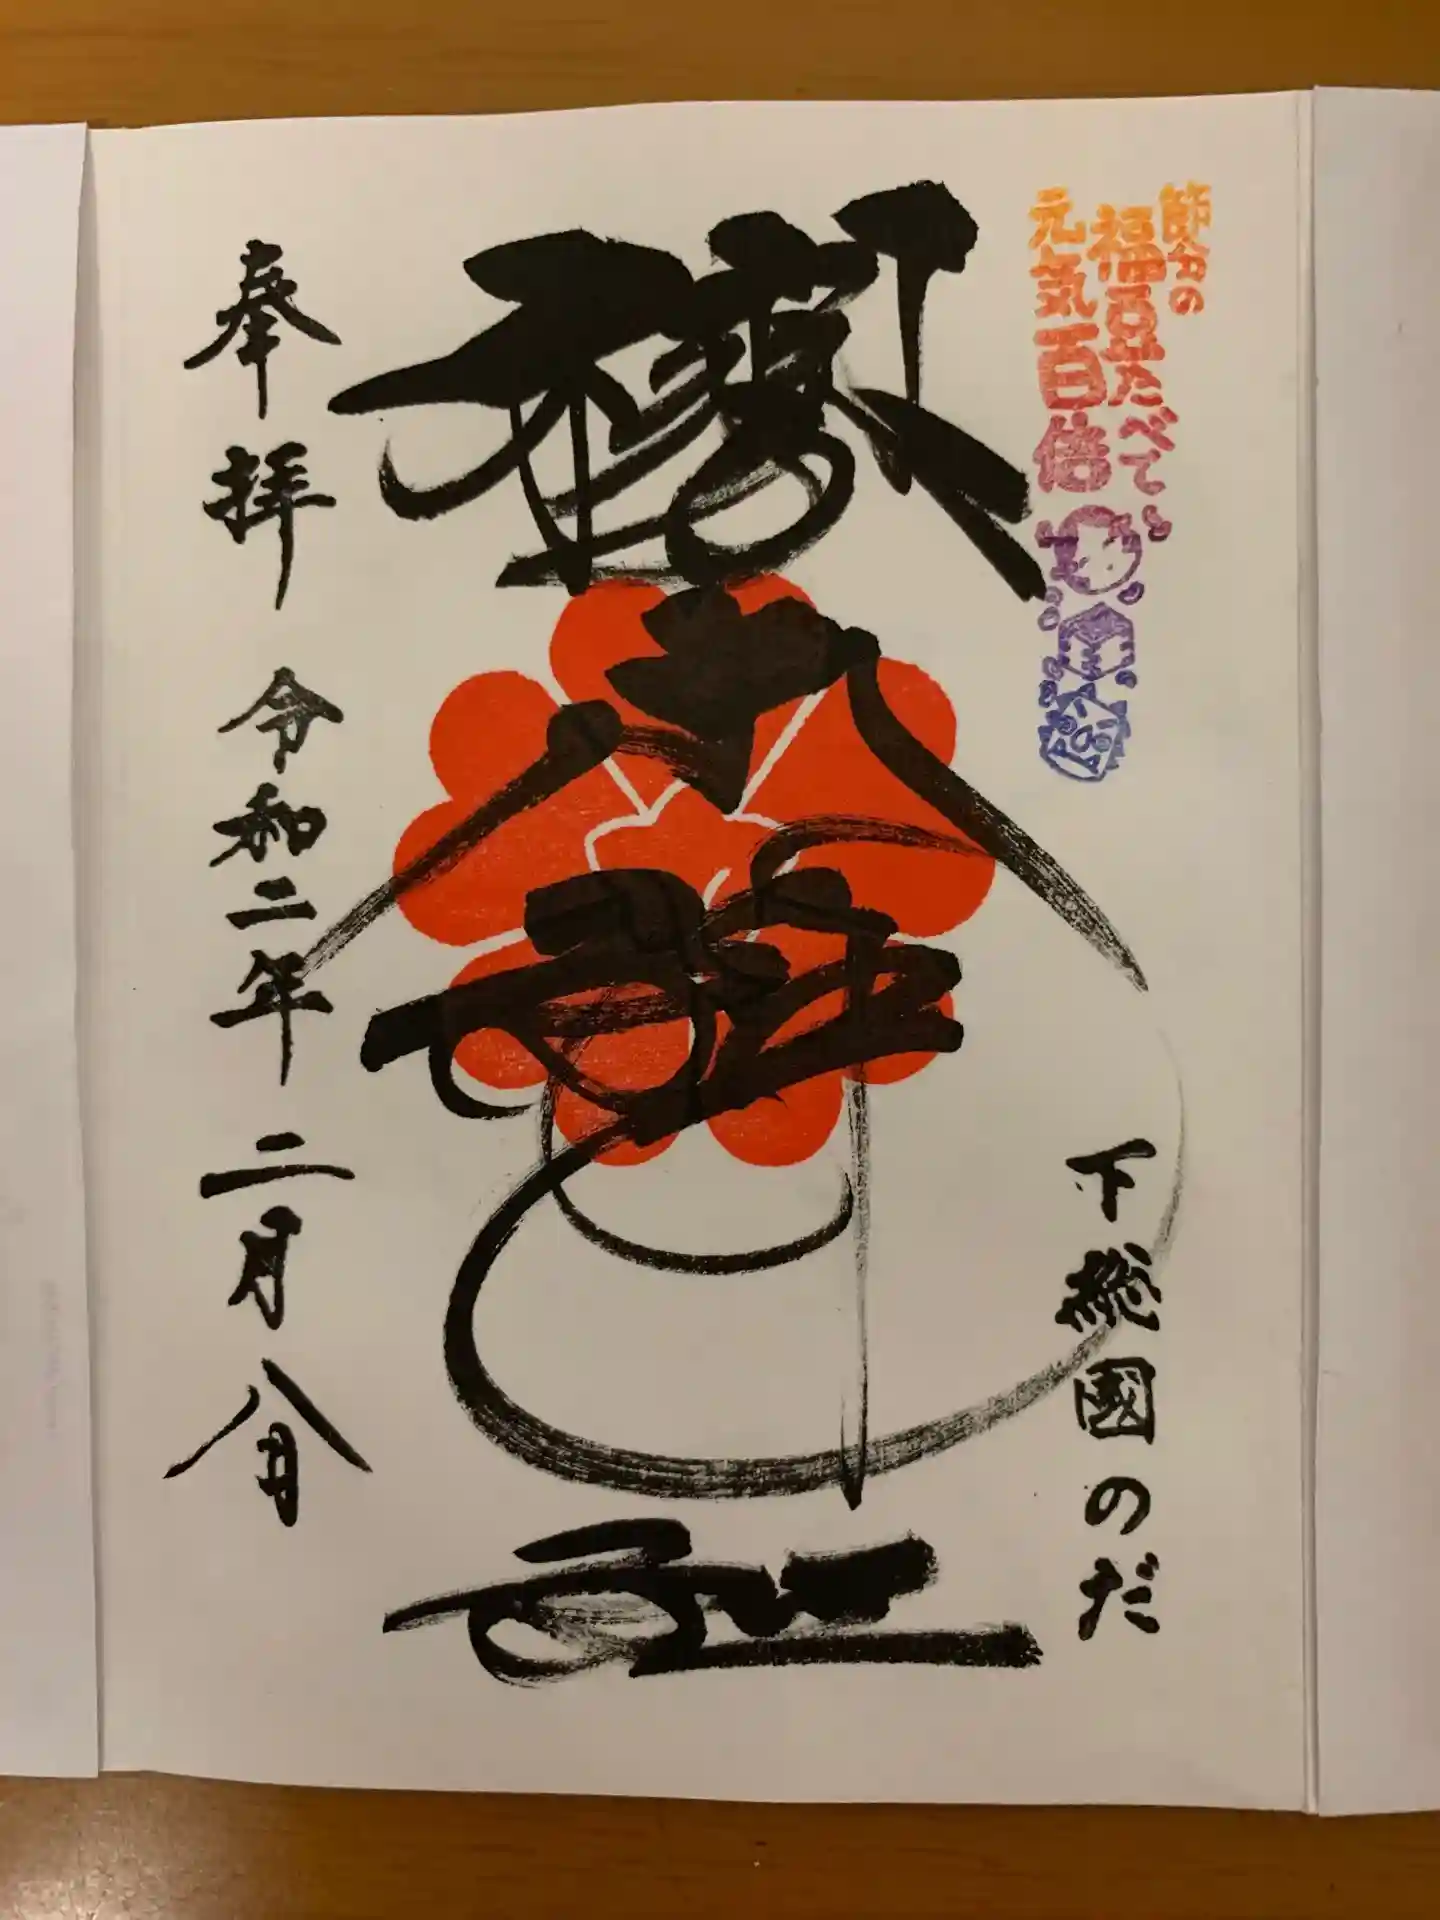 節分の
福豆たべて
元気百倍
下総國のだ
櫻木神社
奉拝 令和二年 二月八日